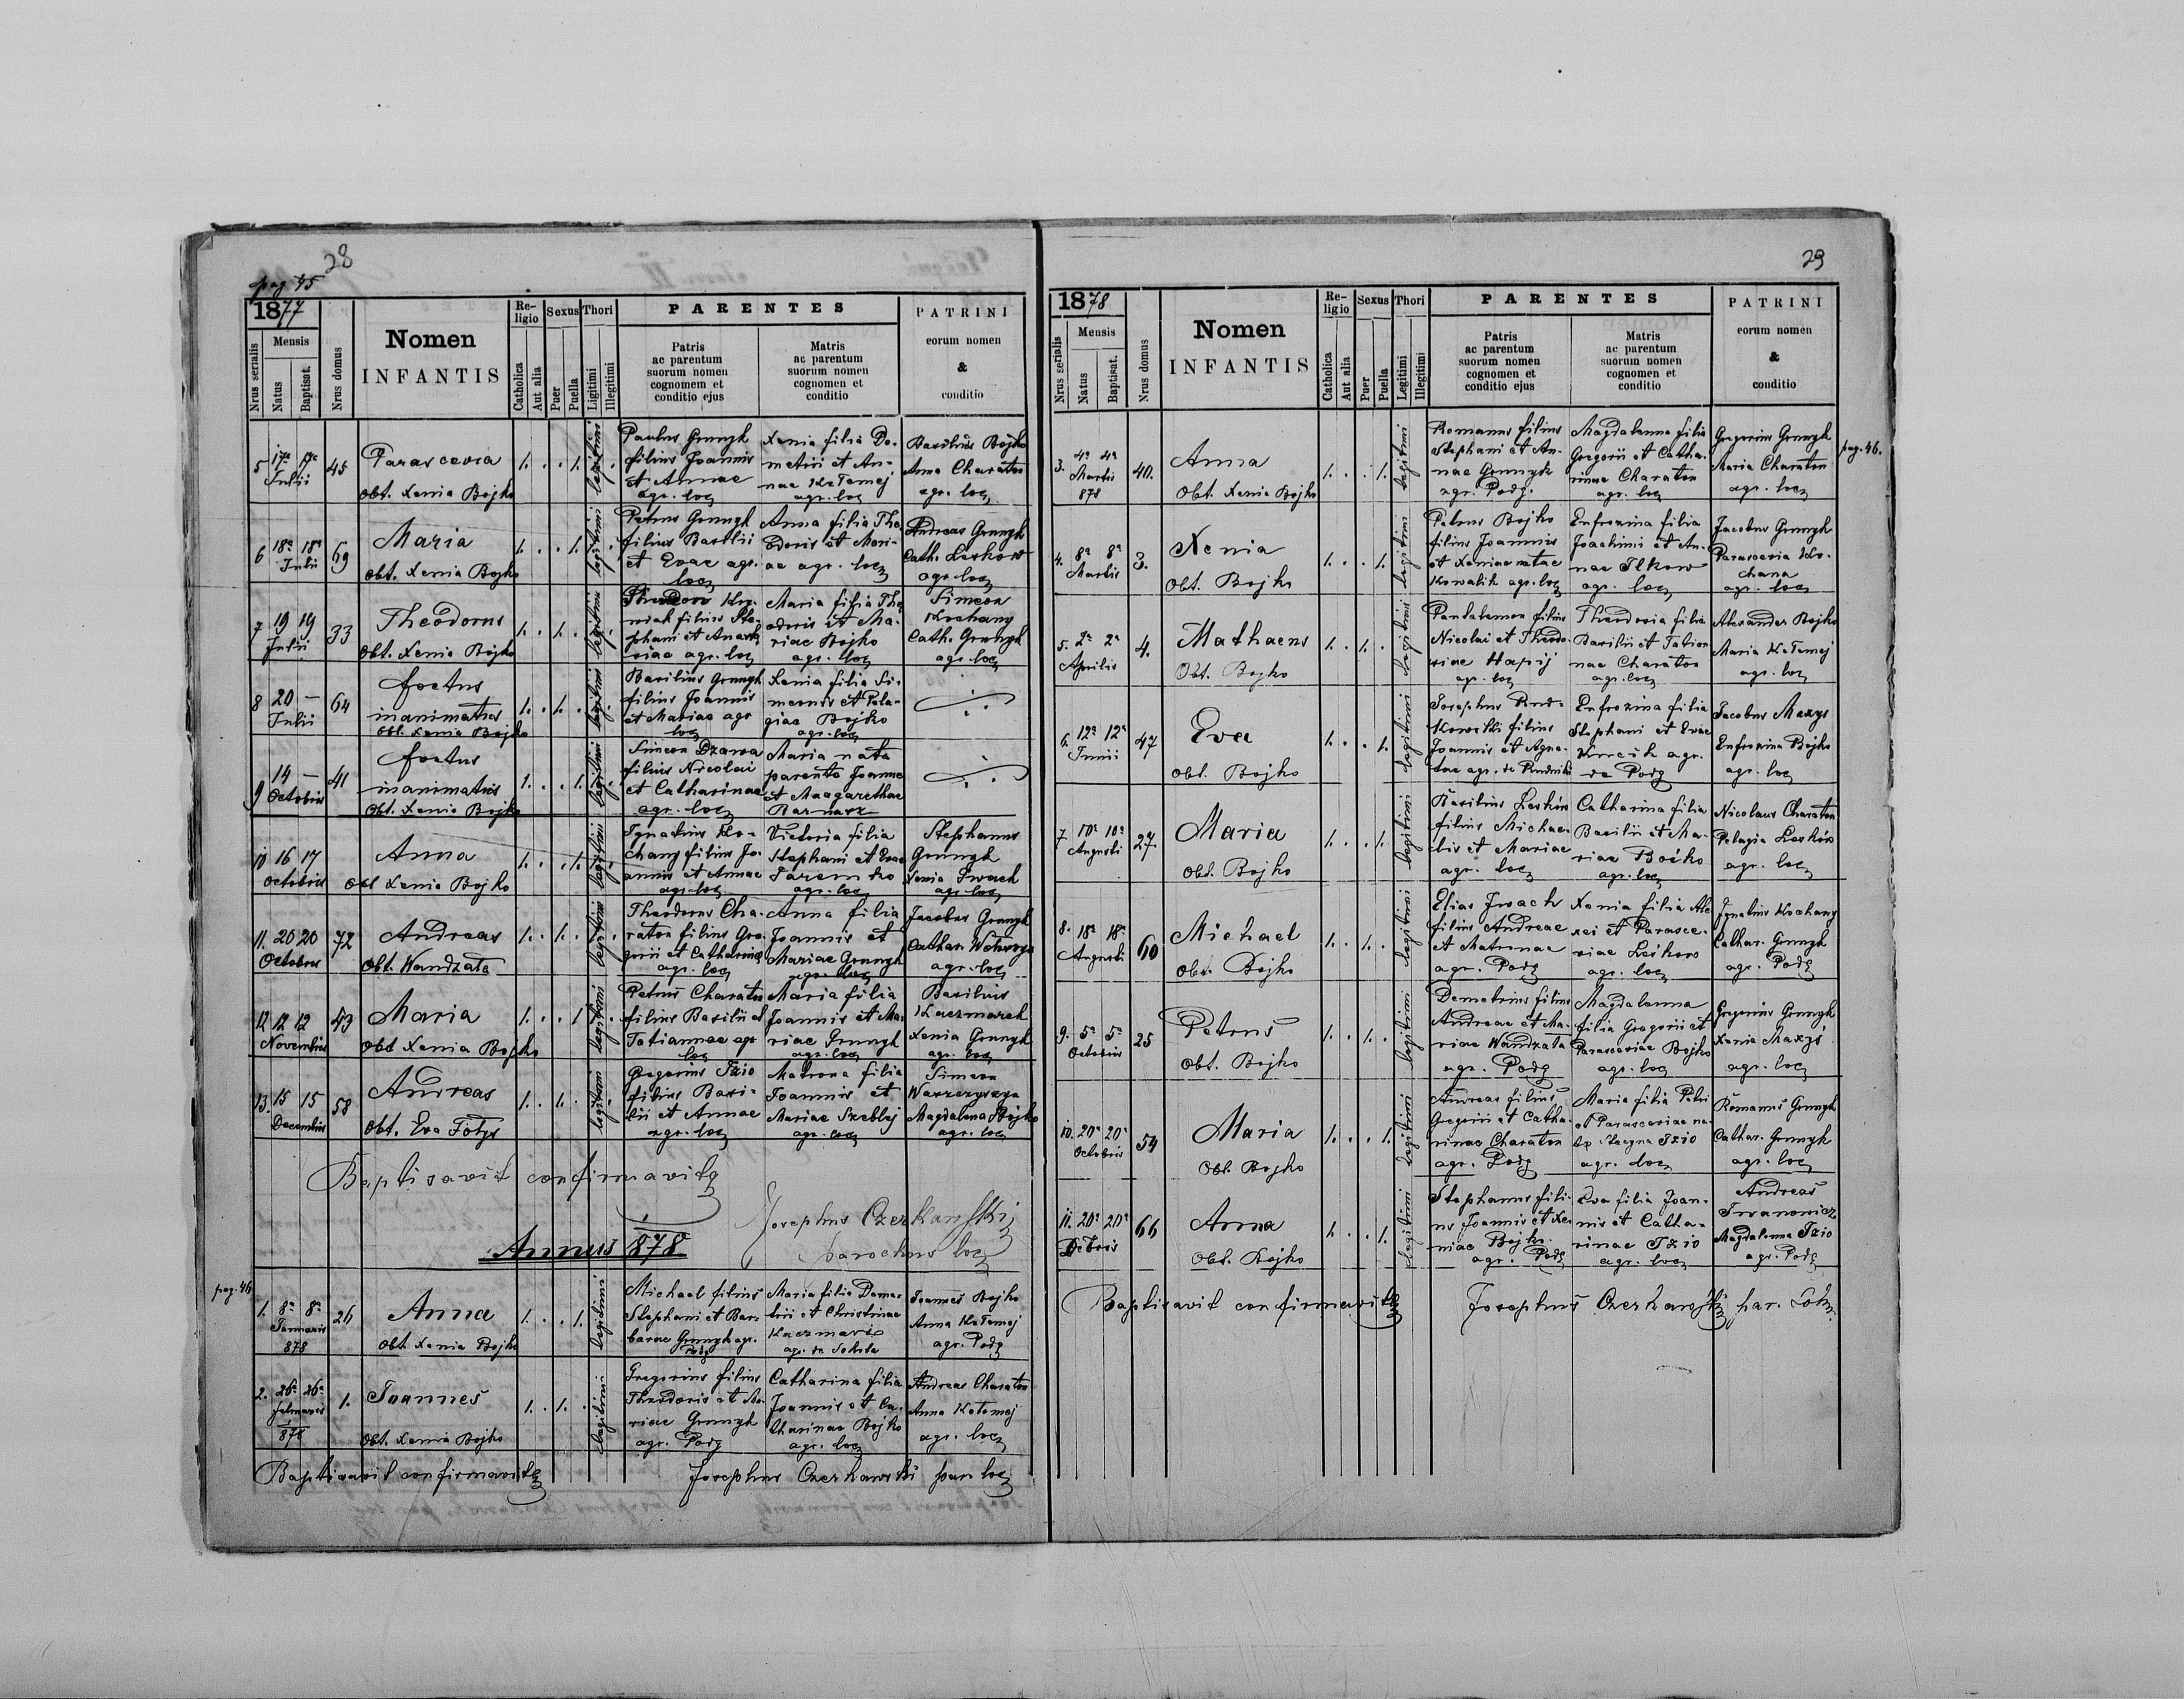 28
pag 45
1877
Nrus serialis
Mensis
Natus
Baptisat.
Nrus domus
Nomen
INFANTIS
Re-
ligio
Catholica
Aut alia
Sexus
Puer
Puella
Thori
Ligitimi
Illegitimi
PARENTES
Patris
ac parentum
suorum nomen
cognomem et
conditio ejus
Matris
ac parentum
suorum nomen
cognomen et
conditio
PATRINI
eorum nomen
&
conditio
5
17a 17a
Julii
45
Parascevia
Obt. Xenia Bojko
1. . . 1.
legitimi
Paulus Grunyk
filius Joannis
et Annae
agr. loc
Xenia filia De-
metrii et An-
nae Kałamej
agr. loc
Basilius Bojko
Anna Charaton
agr. loc
6
18a 18a
Julii
69
Maria
Obt. Xenia Bojko
1. . . 1.
legitimi
Petrus Grunyk
filius Basilii
et Evae agr.
loc
Anna filia The-
odoris et Mari-
ae agr. loc
Andreas Grunyk
Cath. Leskow
agr. loc
7
19 19
Julii
33
Theodorus
Obt. Xenia Bojko
1. . 1. .
legitimi
filius Ste-
phani et
agr. loc
Maria filia The-
odoris et Ma-
riae Bojko
agr. loc
Simeon
Kochany
Cath. Grunyk
agr. loc
8
20 —
Julii
64
foetus
inanimatus
Obt. Xenia Bojko
1. . 1. .
legitimi
Basilius Grunyk
filius Joannis
et Mariae agr
loc
Xenia filia Si-
meonis et Pela-
giae Bojko
agr. loc
9
14 —
Octobris
41
foetus
inanimatus
Obt. Xenia Bojko
1. . . 1.
legitimi
Simeon Dzawa
filius Nicolai
et Catharinae
agr. loc
Maria nata
parente Joanne
et Maagarethae
Barnasz
10
16 17
Octobris
Anna
Obt Xenia Bojko
1. . . 1.
legitimi
Ignatius Ko-
chany filius Jo-
annis et Annae
agr. loc
Victoria filia
Stephani et Evae
agr. loc
Stephanus
Grunyk
Xenia Iwach
agr. loc
11.
20 20
Octobris
72
Andreas
Obt. Wandzata
1. . 1. .
legitimi
Theodorus Cha-
raton filius Gre-
gorii et Catharinae
agr. loc
Anna filia
Joannis et
Mariae Grunyk
agr. loc
Jacobus Grunyk
Cathar.
agr. loc
12
12 12
Novembris
43
Maria
Obt Xenia Bojko
1. . . 1
legitimi
Petrus Charaton
filius Basilii et
Tatiannae agr
loc
Maria filia
Joannis et Ma-
riae Grunyk
agr. loc
Basilius
Kaczmarek
Xenia Grunyk
agr. loc
13.
15 15
Decembris
58
Andreas
Obt. Eva Fotys
1. . 1. .
legitimi
Gregorius Izio
filius Basi-
lii et Annae
agr. loc
Matrona filia
Joannis et
Mariae Szeblij
agr. loc
Simeon
Magdalena Bojko
agr. loc
Baptisavit confirmavitq
Josephus Czerkawski
parochus loc
Annus 1878
pag. 46
1.
8a 8a
Januaris
878
26
Anna
Obt Xenia Bojko
1. . . 1.
legitimi
Michael filius
Stephani et Bar-
barae Grunyk agr.
Podg
Maria filia Deme-
trii et Christinae
Kaczmarz
agr. de
Joannes Bojko
Anna Kałamej
agr. Podg
2.
26a 26a
februaris
1878
1.
Joannes
Obt. Xenia Bojko
1. . 1. .
legitimi
Gregorius filius
Theodoris et Ma-
riae Grunyk
agr. Podg
Catharina filia
Joannis et Ca-
tharinae Bojko
agr. loc
Andreas Charaton
Anna Kałamej
agr. loc
Baptisavit confirmavitq
Josephus Czerkawski par loc
29
1878
Nrus serialis
Mensis
Natus
Baptisat.
Nrus domus
Nomen
INFANTIS
Re-
ligio
Catholica
Aut alia
Sexus
Puer
Puella
Thori
Legitimi
Illegitimi
PARENTES
Patris
ac parentum
suorum nomen
cognomen et
conditio ejus
Matris
ac parentum
suorum nomen
cognomen et
conditio
PATRINI
eorum nomen
&
conditio
3.
4a 4a
Martis
878
40.
Anna
Obt. Xenia Bojko
1. . . 1.
legitimi
Romanus filius
Stephani et An-
nae Grunyk
agr. Podg.
Magdalenna filia
Gregorii et Catha-
rinae Charaton
agr. loc
Gregorius Grunyk
Maria Charaton
agr. loc
pag. 46.
4.
8a 8a
Martis
3.
Xenia
Obt. Bojko
1. . . 1.
legitimi
Petrus Bojko
filius Joannis
et Xeniae natae
Kowalik agr. loc
Eufrozina filia
Joachimi et An-
nae Ilkow
agr. loc
Jacobus Grunyk
Parascevia Ko-
chana
agr. loc
5.
2a 2a
Aprilis
4.
Mathaeus
Obt. Bojko
1. . 1. .
legitimi
Pantalemon filius
Nicolai et Theodo-
siae Hapij
agr. loc
Theodosia filia
Basilii et Tatian
nae Charaton
agr. loc
Alexander Bojko
Maria Kałamej
agr. loc
6.
12a 12a
Junii
47
Eva
Obt. Bojko
1. . . 1.
legitimi
Josephus Rud-
kowski filius
Joannis et Agne-
tae agr. de Rudniki
Eufrozina filia
Stephani et Evae
agr.
de Podg
Jacobus Mazys
Eufrozina Bojko
agr. loc
7
10a 10a
Augusti
27.
Maria
Obt. Bojko
1. . . 1.
legitimi
Basilius Leskow
filius Michae-
lis et Mariae
agr. loc
Catharina filia
Basilii et Ma-
riae Bojko
agr. loc
Nicolaus Charaton
Pelagia Leskow
agr. loc
8.
18a 18a
Augusti
60
Michael
Obt. Bojko
1. . 1. .
legitimi
Elias Iwach
filius Andreae
et Matronae
agr. Podg
Xenia filia Ale-
xei et Parasce-
viae Leskow
agr. loc
Ignatius Kochany
Cathar. Grunyk
agr. Podg
9.
5a 5a
Octobris
25
Petrus
Obt. Bojko
1. . 1. .
legitimi
Demetrius filius
Andreae et Ma-
riae Wandzata
agr. Podg
Magdalenna
filia Gregorii et
Parasceviae Bojko
agr. loc
Gregorius Grunyk
Xenia Mazys
agr. loc
10.
20a 20a
Octobris
54
Maria
Obt. Bojko
1. . . 1.
legitimi
Andreas filius
Gregorii et Catha-
rinae Charaton
agr. Podg
Maria filia Petri
et Parasceviae na-
Izio
agr. loc
Romanus Grunyk
Cathar. Grunyk
agr. loc
11.
20a 20a
66
Anna
Obt. Bojko
1. . . 1.
legitimi
Stephanus fili-
us Joannis et Xe-
niae Bojko
agr. Podg
Eva filia Joan-
nis et Catha-
rinae Izio
agr. loc
Andreas
Iwanowicz
Magdalenna Izio
agr. Podg
Baptisavit confirmavitq
Josephus Czerkawski par.